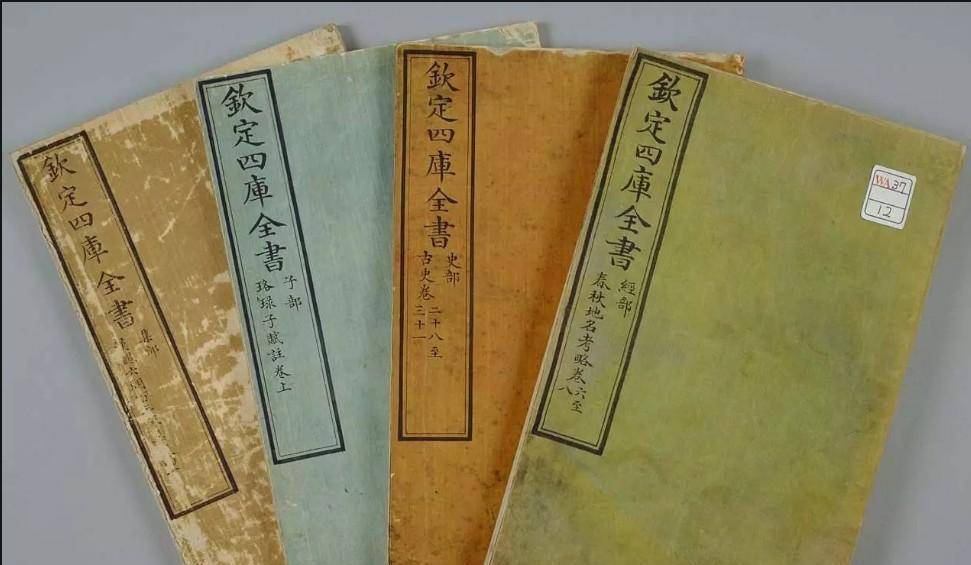 欽定四庫全書
經部
春秋地名考略卷六至
八
WA 37
12
欽定四庫全書
史部
古史卷二十八至
三十一
欽定四庫全書
子部
珞琭子賦註卷上
欽定四庫全書
集部